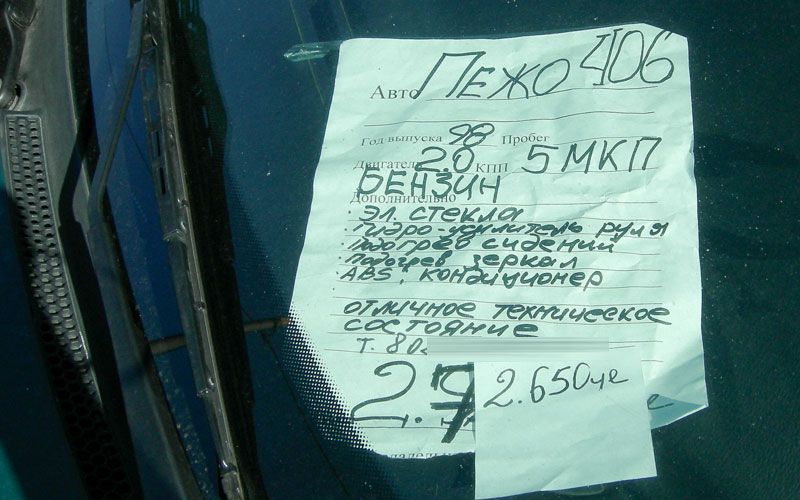 Авто ПЕЖО 406
Год выпуска 98 Пробег
Двигатель 20 КПП 5 МКП
БЕНЗИН
Дополнительно
· ЭЛ. СТЕКЛА
· Гидро-усилитель руля
· Подогрев сидений
· Подогрев зеркал
· ABS, кондиционер
отличное техническое
состояние
Т. 80
2.
2.650 уе